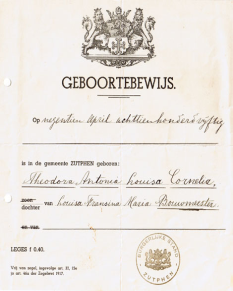 GEBOORTEBEWIJS.
Op negentien April achttien honderd vijftig
is in de gemeente ZUTPHEN geboren:
Theodora Antonia Louisa Cornelia,
zoon
dochter van Louisa Fransina Maria Bouwmeester
en van
LEGES f 0.40.
Vrij van zegel, ingevolge art. 32, 10e
der Zegelwet 1917.
BURGERLIJKE STAND
ZUTPHEN